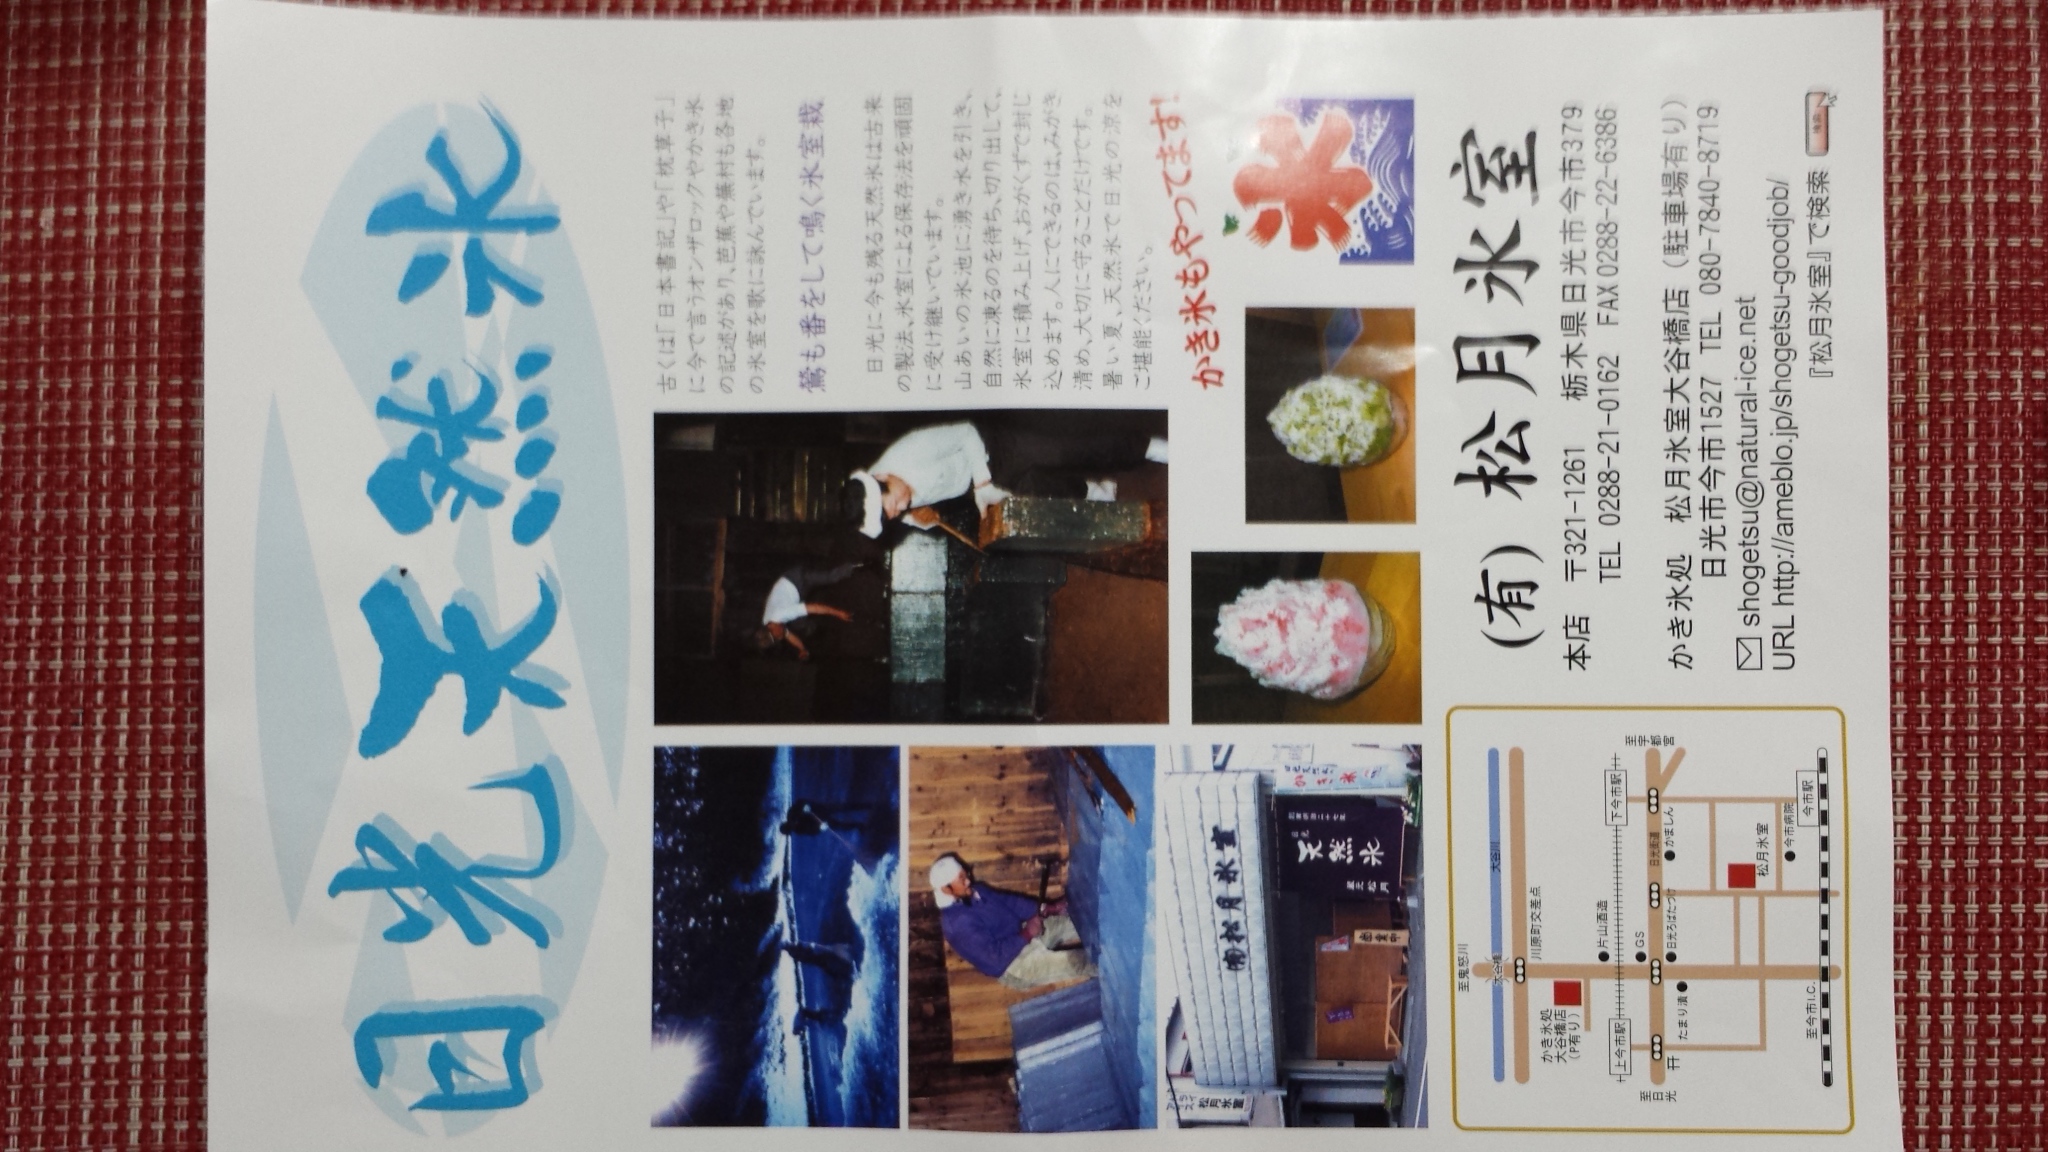 日光天然氷
古くは「日本書記」や「枕草子」
に今で言うオンザロックやかき氷
の記述があり、芭蕉や蕪村も各地
の氷室を歌に詠んでいます。
鶯も番をして鳴く氷室哉
日光に今も残る天然氷は古来
の製法、氷室による保存法を頑固
に受け継いでいます。
山あいの氷池に湧き水を引き、
自然に凍るのを待ち、切り出して、
氷室に積み上げ、おがくずで封じ
込めます。人にできるのは、みがき
清め、大切に守ることだけです。
暑い夏、天然氷で日光の涼を
ご堪能ください。
かき氷もやってます!
氷
(有)松月氷室
天然氷
日光
蔵元 松月
かき氷
営業中
松月氷室
(有) 松月氷室
本店 〒321-1261 栃木県日光市今市379
TEL 0288-21-0162 FAX0288-22-6386
かき氷処 松月氷室大谷橋店(駐車場有り)
日光市今市1527 TEL 080-7840-8719
shogetsu@natural-ice.net
URL http://ameblo.jp/shogetsu-goodjob/
『松月氷室』で検索
検索
至鬼怒川
大谷橋
大谷川
川原町交差点
かき氷処
大谷橋店
(P有り)
片山酒造
上今市駅
下今市駅
GS
至日光
日光街道
至宇都宮
たまり漬
日光ろばたづけ
かましん
松月氷室
今市病院
至今市I.C.
今市駅